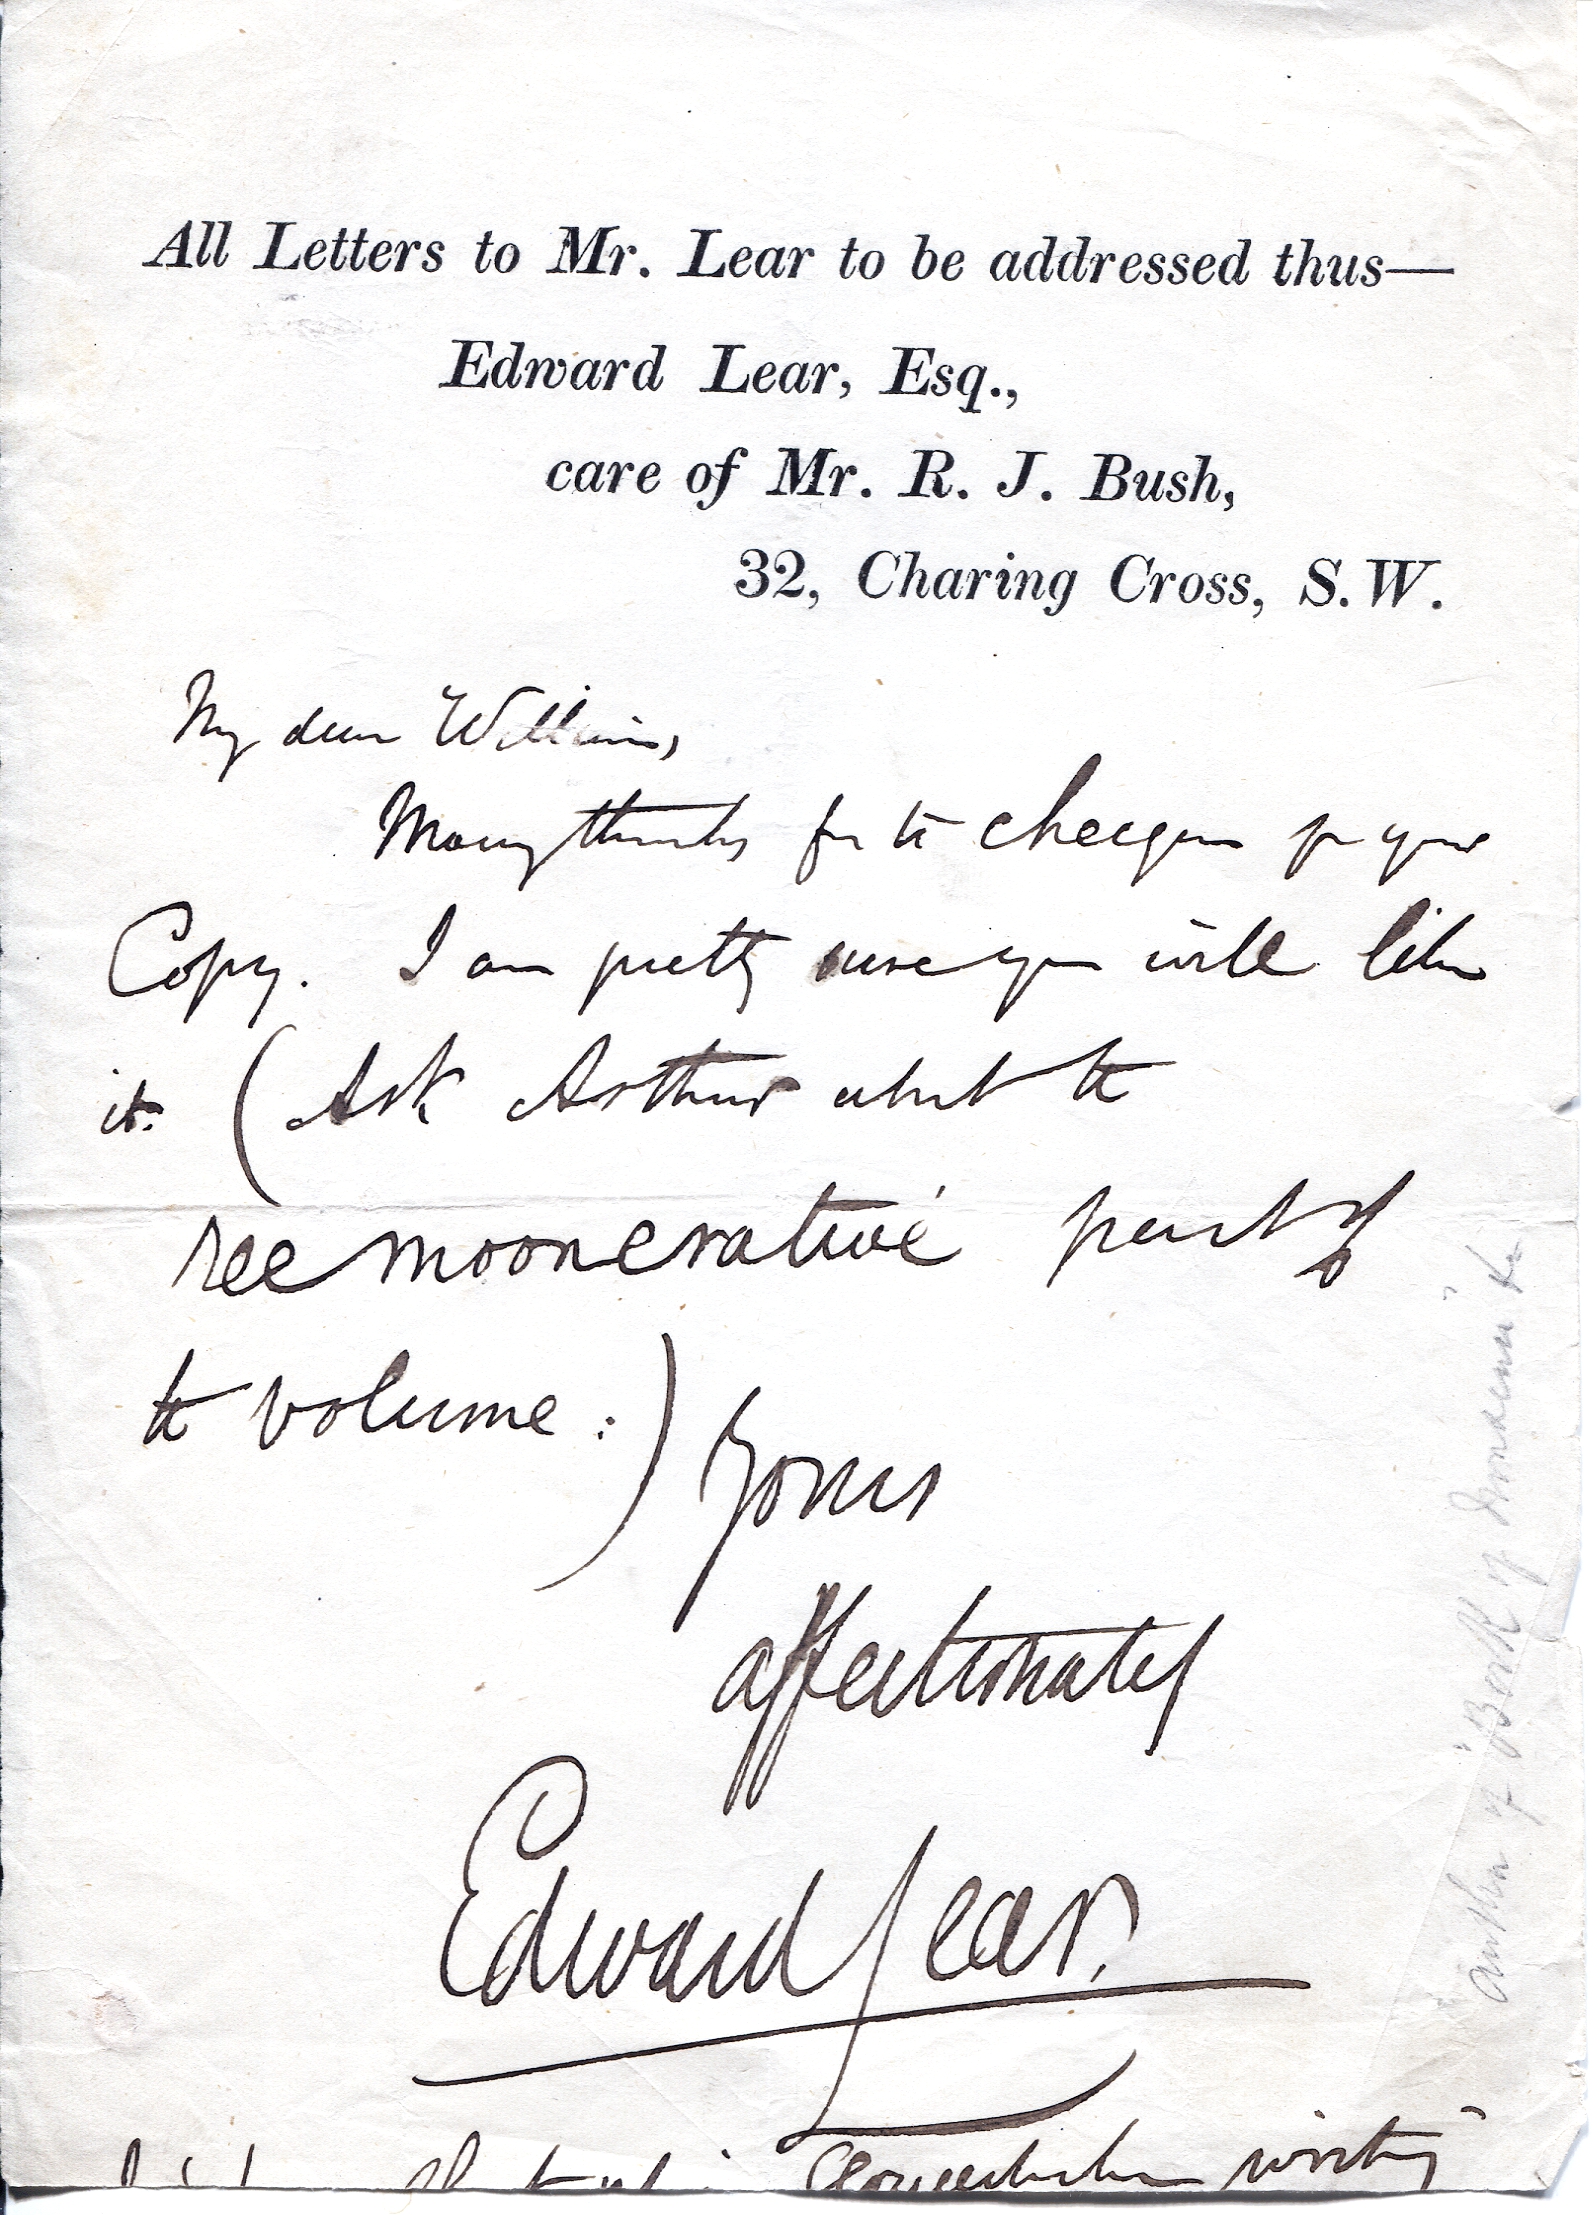 All Letters to Mr. Lear to be addressed thus—
Edward Lear, Esq.,
care of Mr. R. J. Bush,
32, Charing Cross, S.W.
My dear William,
Many thanks for the cheque for your
Copy. I am pretty sure you will like
it. (Ask Arthur about the
reemoonerativé part of
the volume:)
Yours
affectionately
Edward Lear.
Gloucestershire writing
Author of "Book of Nonsense" &c